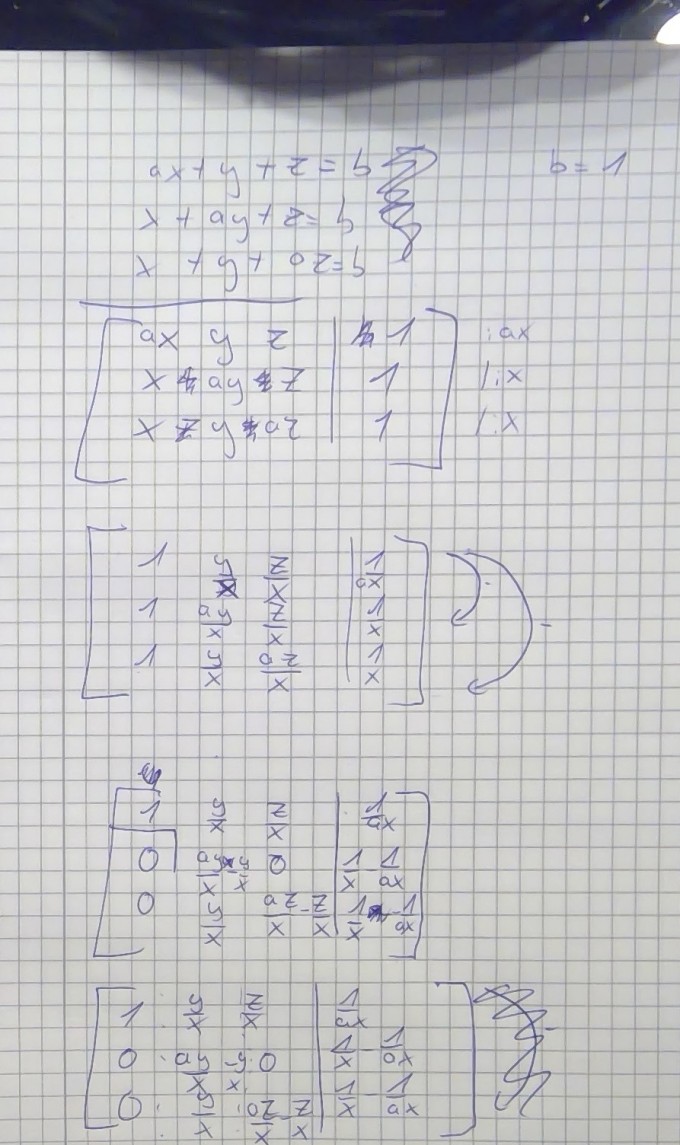 ax + y + z = b
b = 1
x + ay + z = b
x + y + az = b
ax y z | 1 :ax
x ay z | 1 /:x
x y az | 1 /:x
1 y/x z/x | 1/ax
1 ay/x z/x | 1/x
1 y/x za/x | 1/x
-
1 y/x z/x | 1/ax
0 ay/x - y/x 0 | 1/x - 1/ax
0 y/x za/x - z/x | 1/x - 1/ax
1 y/x z/x | 1/ax
0 ay/x - y/x 0 | 1/x - 1/ax
0 y/x za/x - z/x | 1/x - 1/ax